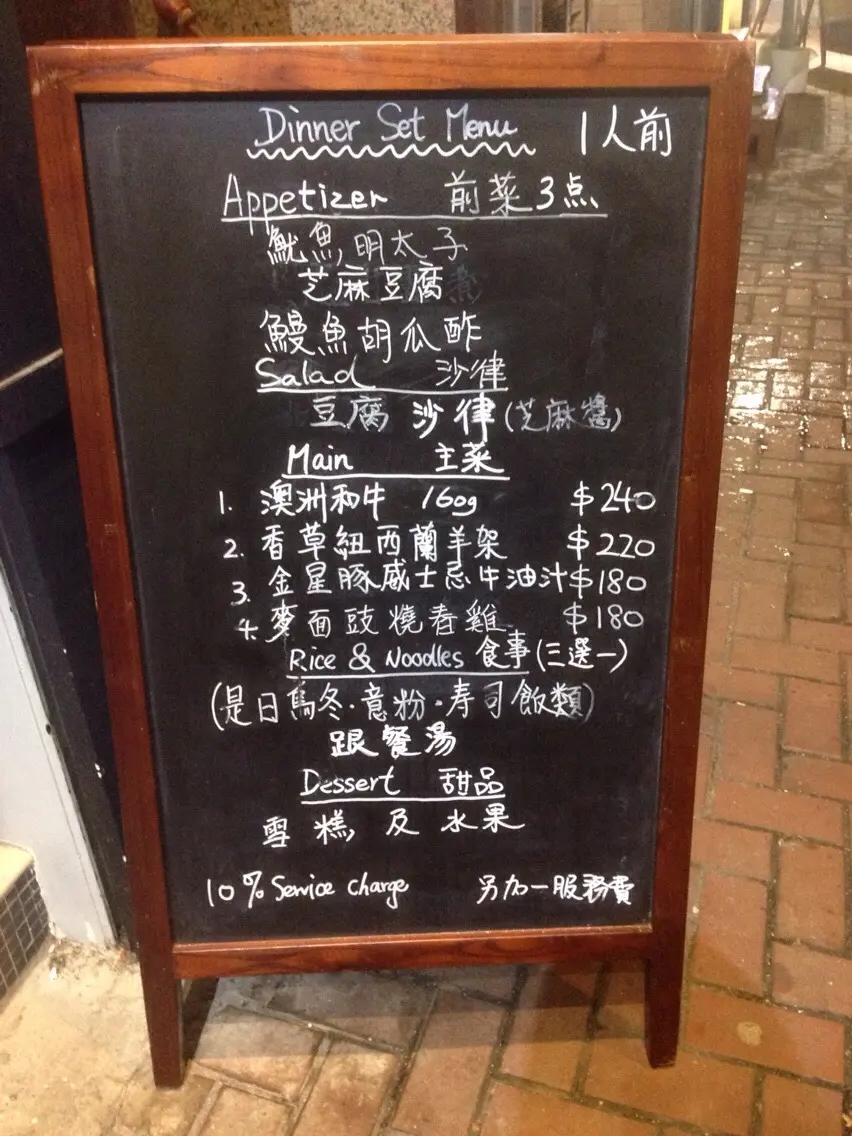 Dinner Set Menu 1人前
Appetizer 前菜3点
魷魚明太子
芝麻豆腐
鰻魚胡瓜酢
Salad 沙律
豆腐沙律(芝麻醬)
Main 主菜
1. 澳洲和牛 160g $240
2. 香草紐西蘭羊架 $220
3. 金星豚威士忌牛油汁 $180
4. 麥面豉燒春雞 $180
Rice & Noodles 食事(三選一)
(是日烏冬·意粉·寿司飯類)
跟餐湯
Dessert 甜品
雪糕及水果
10% Service Charge 另加一服務費